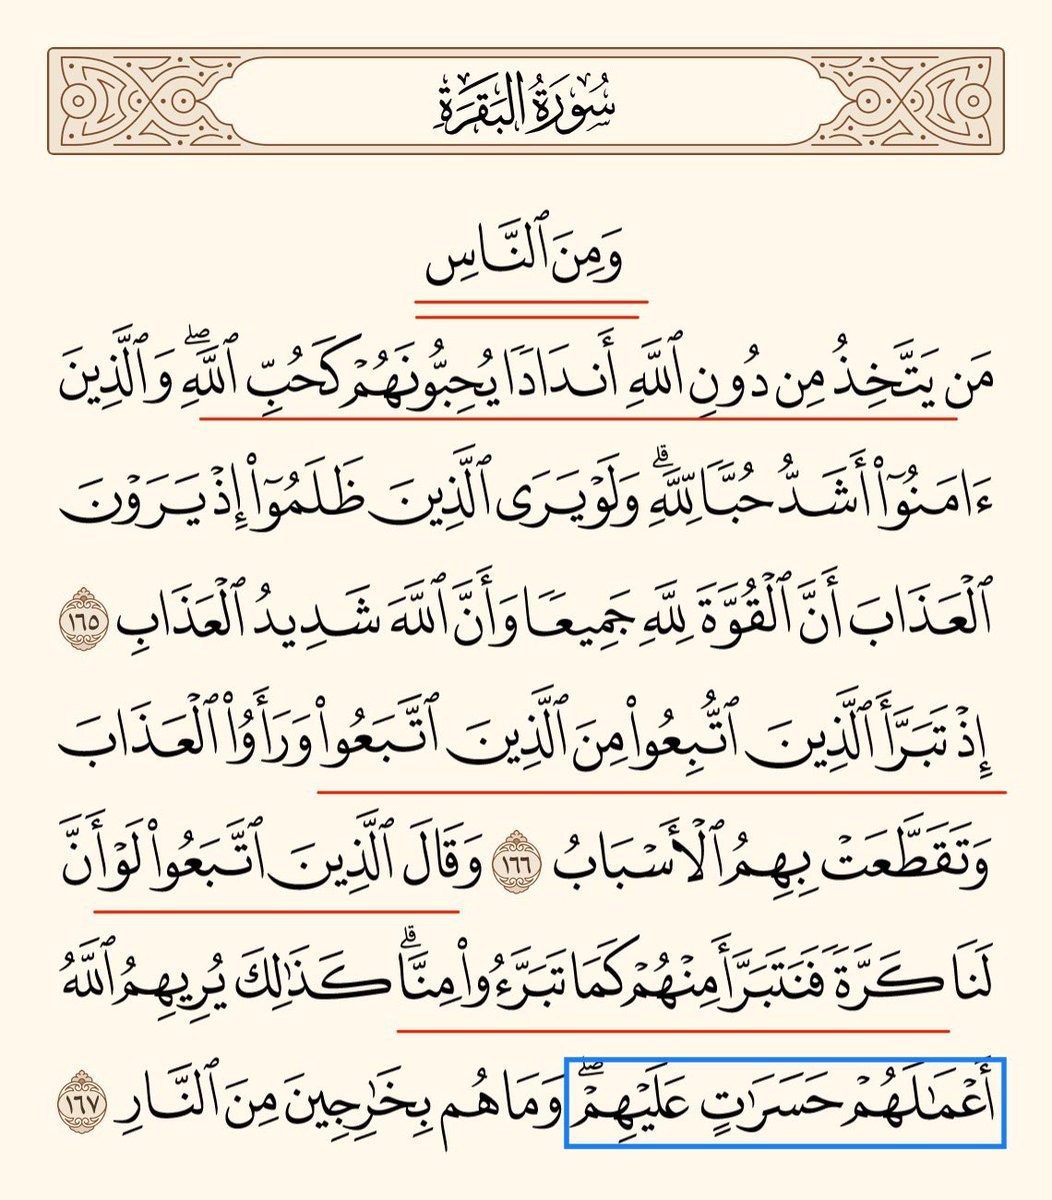 سُورَةُ البَقَرَةِ
وَمِنَ ٱلنَّاسِ
مَن يَتَّخِذُ مِن دُونِ ٱللَّهِ أَندَادًا يُحِبُّونَهُمْ كَحُبِّ ٱللَّهِۖ وَٱلَّذِينَ
ءَامَنُوٓا۟ أَشَدُّ حُبًّا لِّلَّهِۗ وَلَوْ يَرَى ٱلَّذِينَ ظَلَمُوٓا۟ إِذْ يَرَوْنَ
ٱلْعَذَابَ أَنَّ ٱلْقُوَّةَ لِلَّهِ جَمِيعًا وَأَنَّ ٱللَّهَ شَدِيدُ ٱلْعَذَابِ ١٦٥
إِذْ تَبَرَّأَ ٱلَّذِينَ ٱتُّبِعُوا۟ مِنَ ٱلَّذِينَ ٱتَّبَعُوا۟ وَرَأَوُا۟ ٱلْعَذَابَ
وَتَقَطَّعَتْ بِهِمُ ٱلْأَسْبَابُ ١٦٦ وَقَالَ ٱلَّذِينَ ٱتَّبَعُوا۟ لَوْ أَنَّ
لَنَا كَرَّةً فَنَتَبَرَّأَ مِنْهُمْ كَمَا تَبَرَّءُوا۟ مِنَّاۗ كَذَٰلِكَ يُرِيهِمُ ٱللَّهُ
أَعْمَـٰلَهُمْ حَسَرَٰتٍ عَلَيْهِمْۖ وَمَا هُم بِخَـٰرِجِينَ مِنَ ٱلنَّارِ ١٦٧